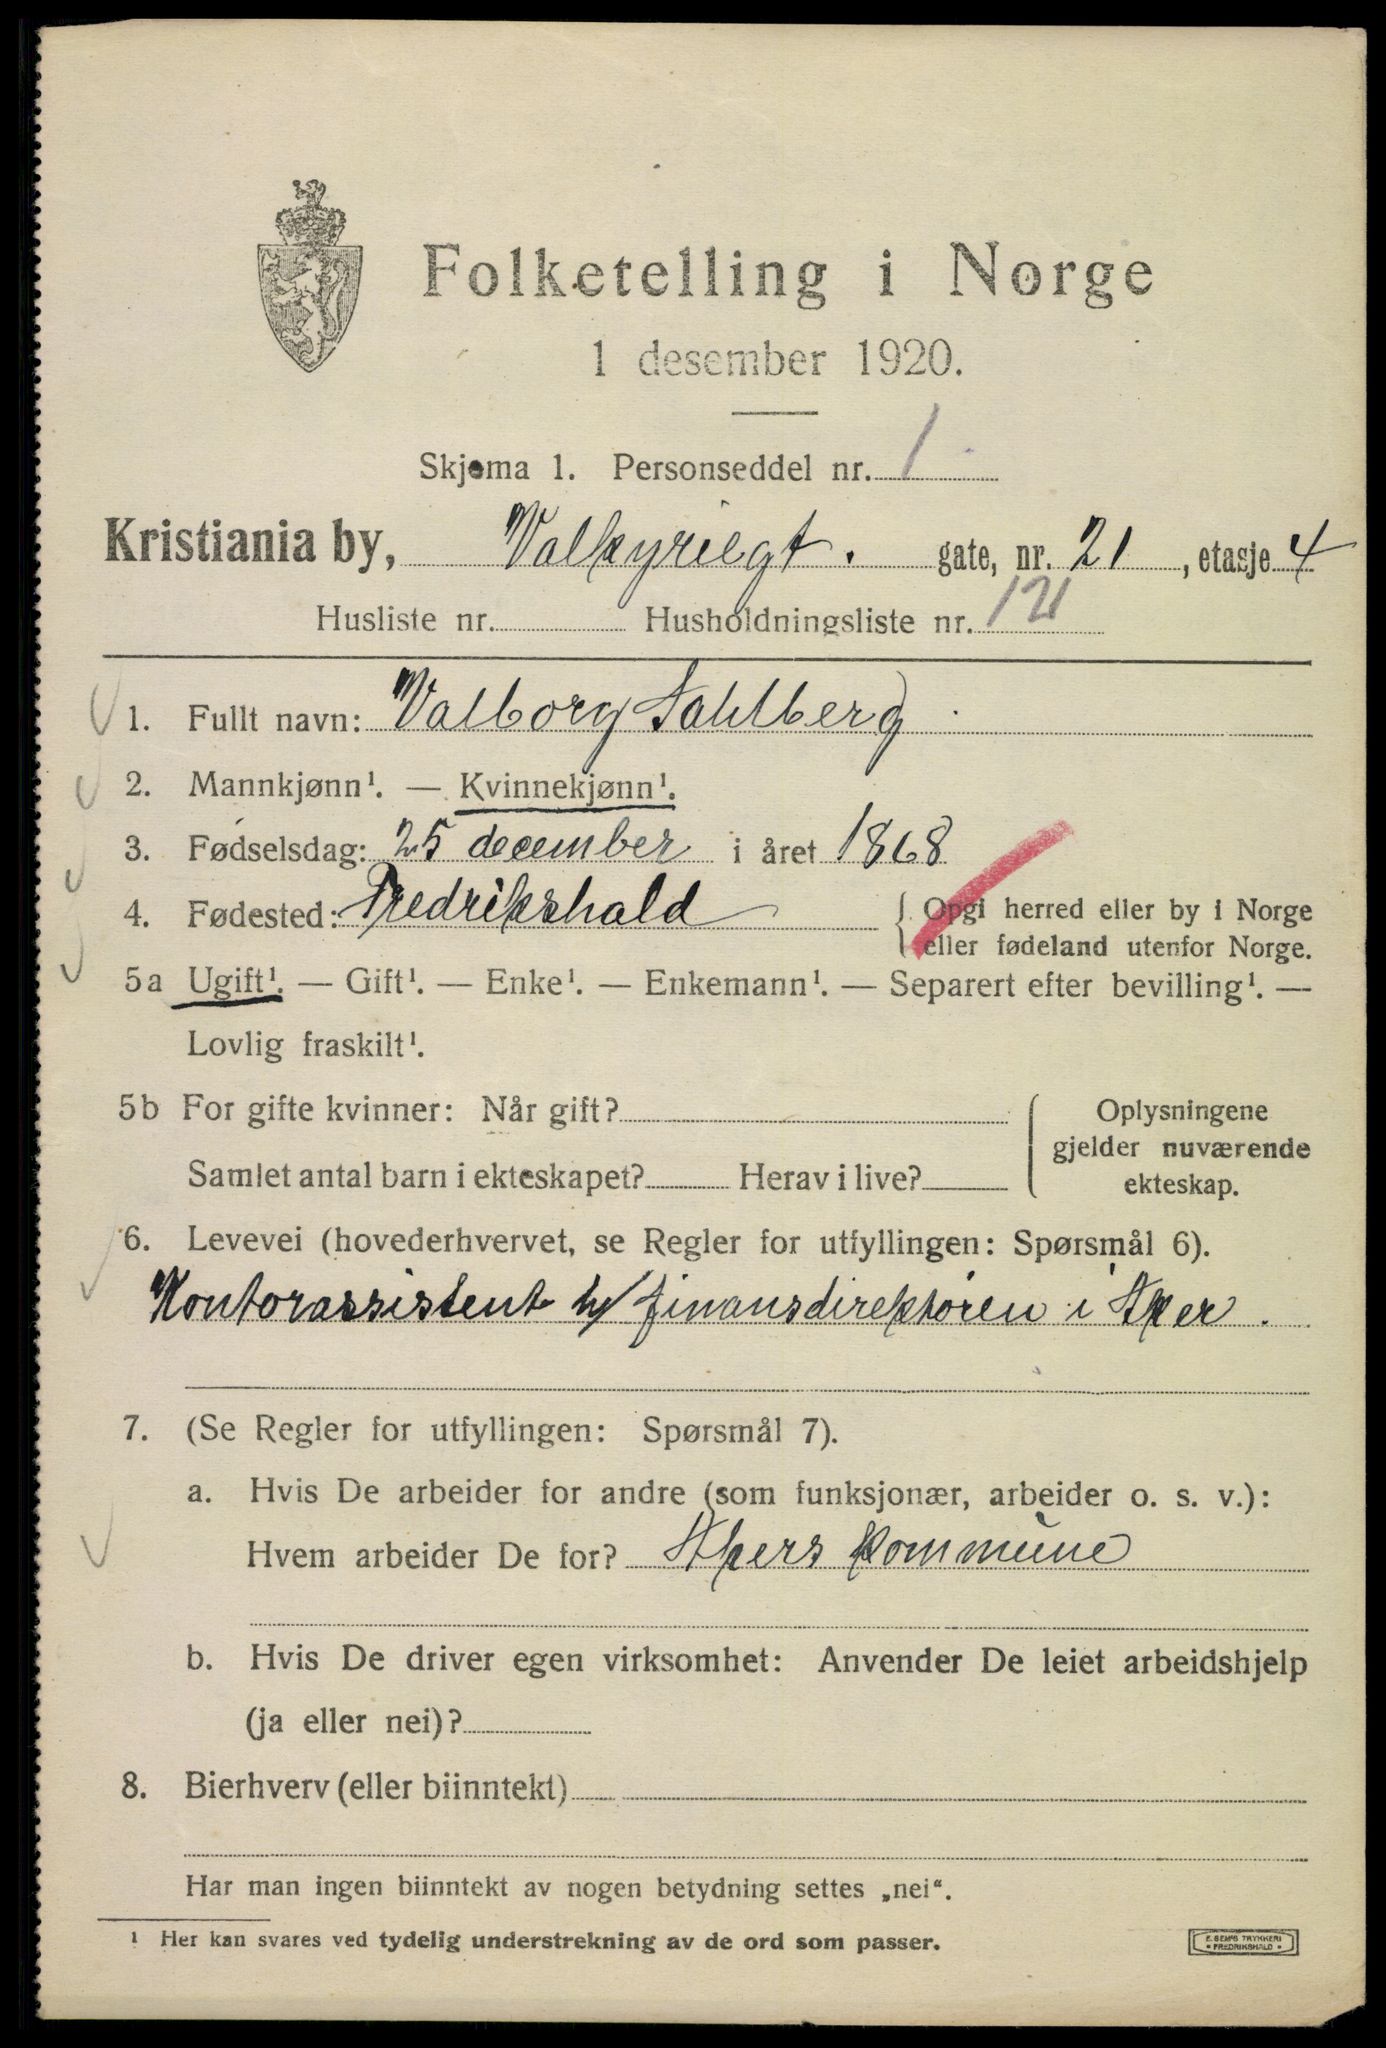 Folketelling i Norge
1 desember 1920.
Skjema 1. Personseddel nr. 1
Kristiania by, Valkyriegt. gate, nr. 21, etasje 4
Husliste nr. Husholdningsliste nr. 121
1. Fullt navn: Valborg Sahlberg
2. Mannkjønn¹. — Kvinnekjønn¹.
3. Fødselsdag: 25 december i året 1868
4. Fødested: Fredrikshald { Opgi herred eller by i Norge
eller fødeland utenfor Norge.
5a Ugift¹. — Gift¹. — Enke¹. — Enkemann¹. — Separert efter bevilling¹. —
Lovlig fraskilt¹.
5b For gifte kvinner: Når gift? Oplysningene
gjelder nuværende
Samlet antal barn i ekteskapet? Herav i live? ekteskap.
6. Levevei (hovederhvervet, se Regler for utfyllingen: Spørsmål 6).
Kontorassistent h/ finansdirektøren i Aker.
7. (Se Regler for utfyllingen: Spørsmål 7).
a. Hvis De arbeider for andre (som funksjonær, arbeider o. s. v.):
Hvem arbeider De for? Akers kommune
b. Hvis De driver egen virksomhet: Anvender De leiet arbeidshjelp
(ja eller nei)?
8. Bierhverv (eller biinntekt)
Har man ingen biinntekt av nogen betydning settes „nei“.
¹ Her kan svares ved tydelig understrekning av de ord som passer.
E. SEM'S TRYKKERI
• FREDRIKSHALD •